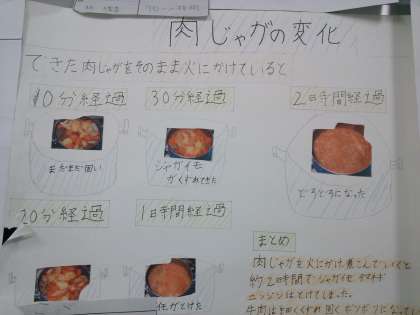 肉じゃがの変化
できた肉じゃがをそのまま火にかけていると
10分経過
まだまだ固い
30分経過
ジャガイモ
がくずれてきた
2時間経過
とろとろになった
20分経過
1時間経過
まとめ
肉じゃがを火にかけ煮こんでいくと
約2時間でジャガイモ、タマネギ
ニンジンはとけてしまった。
牛肉は細くくずれ固くボソボソになって